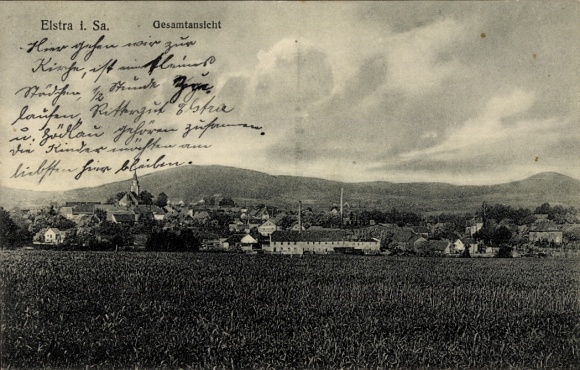 Elstra i. Sa. Gesamtansicht
Hier gehen wir zur
Kirche, ist ein kleines
Städchen, 1/2 Stunde zu
laufen, Rittergut Elstra
u. Gödlau gehören zusammen.
die Kinder möchten am
liebsten hier bleiben.